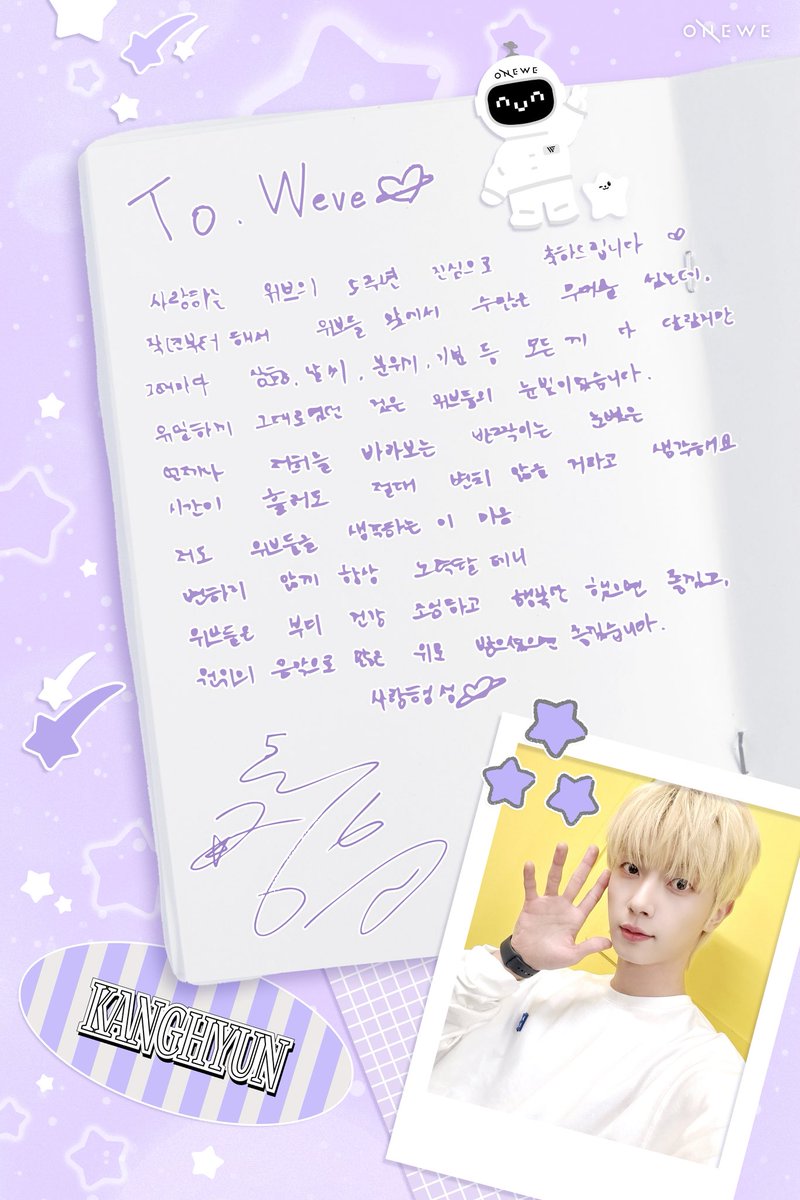 ONEWE
ONEWE
W
To. Weve
사랑하는 위브의 5주년 진심으로 축하드립니다
작년부터 해서 위브들 앞에서 수많은 무대를 섰는데,
그때마다 상황, 날씨, 분위기, 기분 등 모든 게 다 달랐지만
유일하게 그대로였던 것은 위브들의 눈빛이었습니다.
언제나 저희를 바라보는 반짝이는 눈빛은
시간이 흘러도 절대 변치 않을 거라고 생각해요
저도 위브들을 생각하는 이 마음
변하지 않게 항상 노력할 테니
위브들은 부디 건강 조심하고 행복만 했으면 좋겠고,
원위의 음악으로 많은 위로 받으셨으면 좋겠습니다.
KANGHYUN